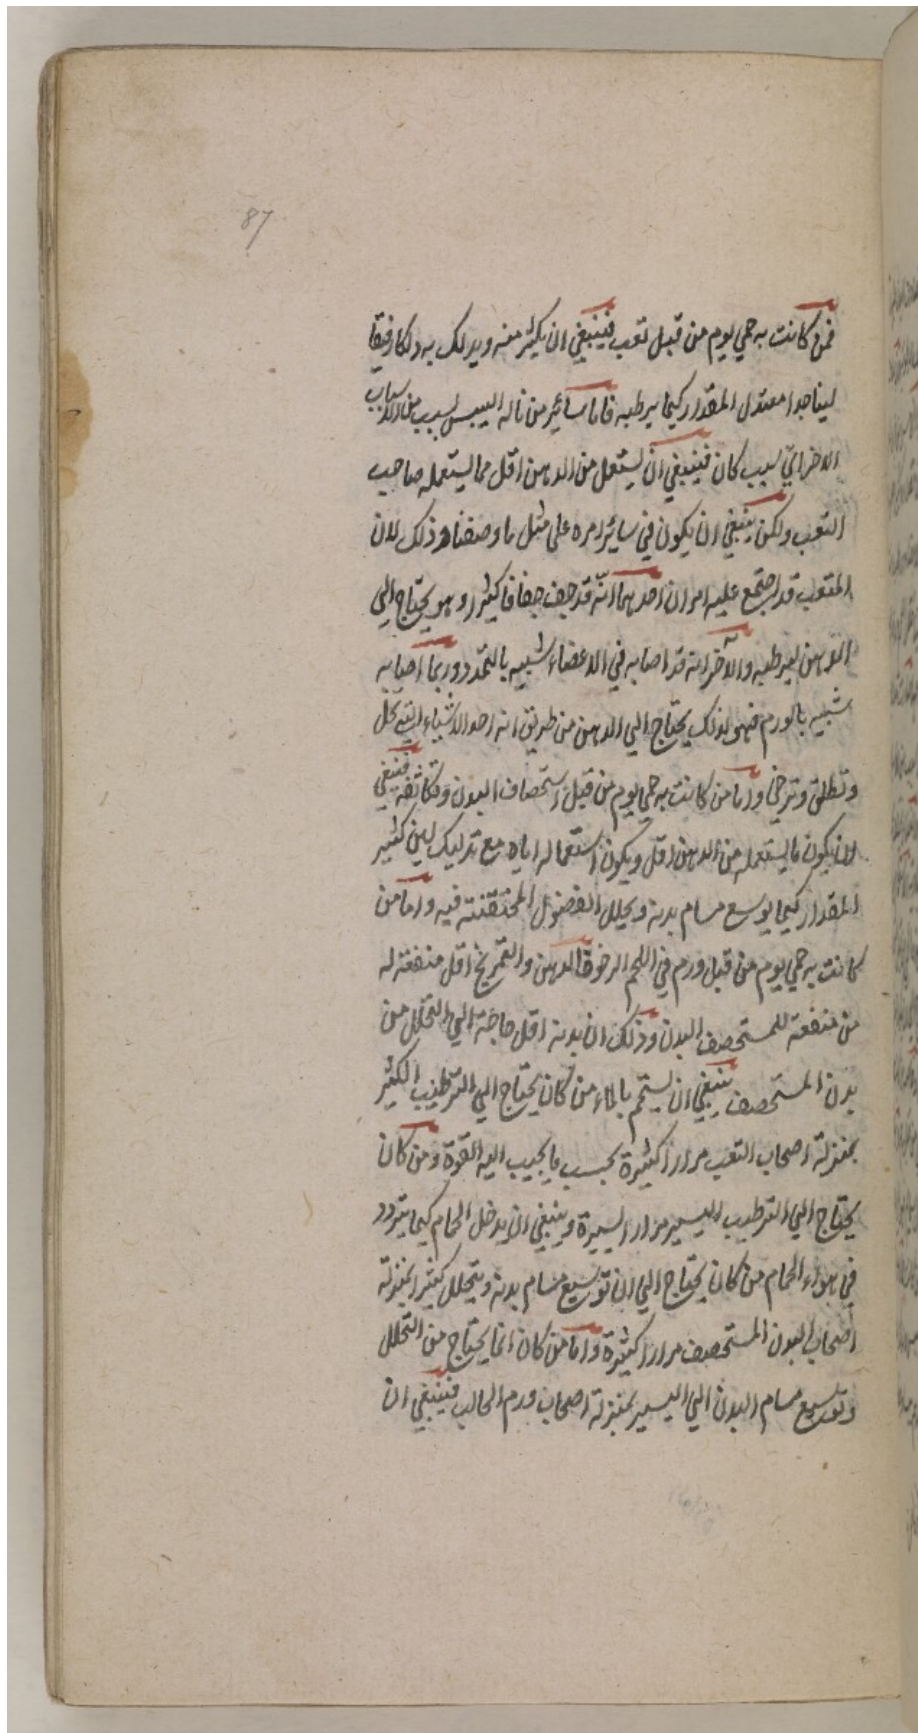 87
فمن كانت به حمي يوم من قبل تعب فينبغي ان يكثر منه ويدلك به دلكا رفيقا
لينا جدا معتدل المقدار كيما يرطبه فاما سائر من ناله اليبس لسبب من الاسباب
الاخر اي سبب كان فينبغي ان يستعمل من الدهن اقل مما يستعمله صاحب
التعب ولكن ينبغي ان يكون في سائر امره على مثل ما وصفنا وذلك لان
المتعوب قد اجتمع عليه امران احدهما انّه قد جف جفافا كثيرا وهو يحتاج الي
الدهن ليرطبه والآخر انه قد اصابه في الاعضاء شبيه بالتمدد وربما اصابه
شبيه بالورم فهو لذلك يحتاج الي الدهن من طريق انه احد الاشياء التي تحلل
وتطلق وترخي واما من كانت به حمي يوم من قبل استحصاف البدن وتكاثفه فينبغي
لان يكون ما يستعمله من الدهن اقل ويكون استعماله اياه مع تدليك لين كثير
المقدار كيما يوسع مسام بدنه ويحلل الفضول المحتقنة فيه واما من
كانت به حمي يوم من قبل ورم في اللحم الرخو فالدهن والتمريخ اقل منفعة له
من منفعته للمستحصف البدن وذلك ان بدنه اقل حاجة الي التحلل من
بدن المستحصف ينبغي ان يستحم بالماء من كان يحتاج الي الترطيب الكثير
بمنزلة اصحاب التعب مرارا كثيرة بحسب ما يجيب اليه القوة ومن كان
يحتاج الي الترطيب اليسير مرارا يسيرة وينبغي ان يدخل الحمام كيما يتردد
في هواء الحمام من كان يحتاج الي ان توسيع مسام بدنه ويتحلل كثيرا بمنزلة
اصحاب البدن المستحصف مرارا كثيرة واما من كان انما يحتاج من التحلل
وتوسيع مسام البدن الي اليسير بمنزلة اصحاب ورم الحالب فينبغي ان